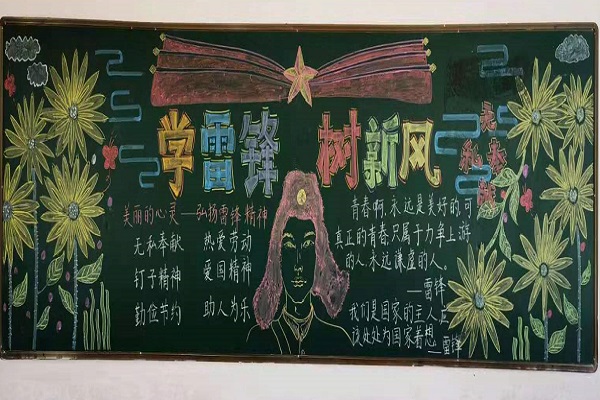 学雷锋 树新风
无私奉献
美丽的心灵——弘扬雷锋精神
无私奉献 热爱劳动
钉子精神 爱国精神
勤俭节约 助人为乐
青春啊,永远是美好的,可
真正的青春,只属于力争上游
的人,永远谦虚的人。
——雷锋
我们是国家的主人,应
该处处为国家着想。
——雷锋